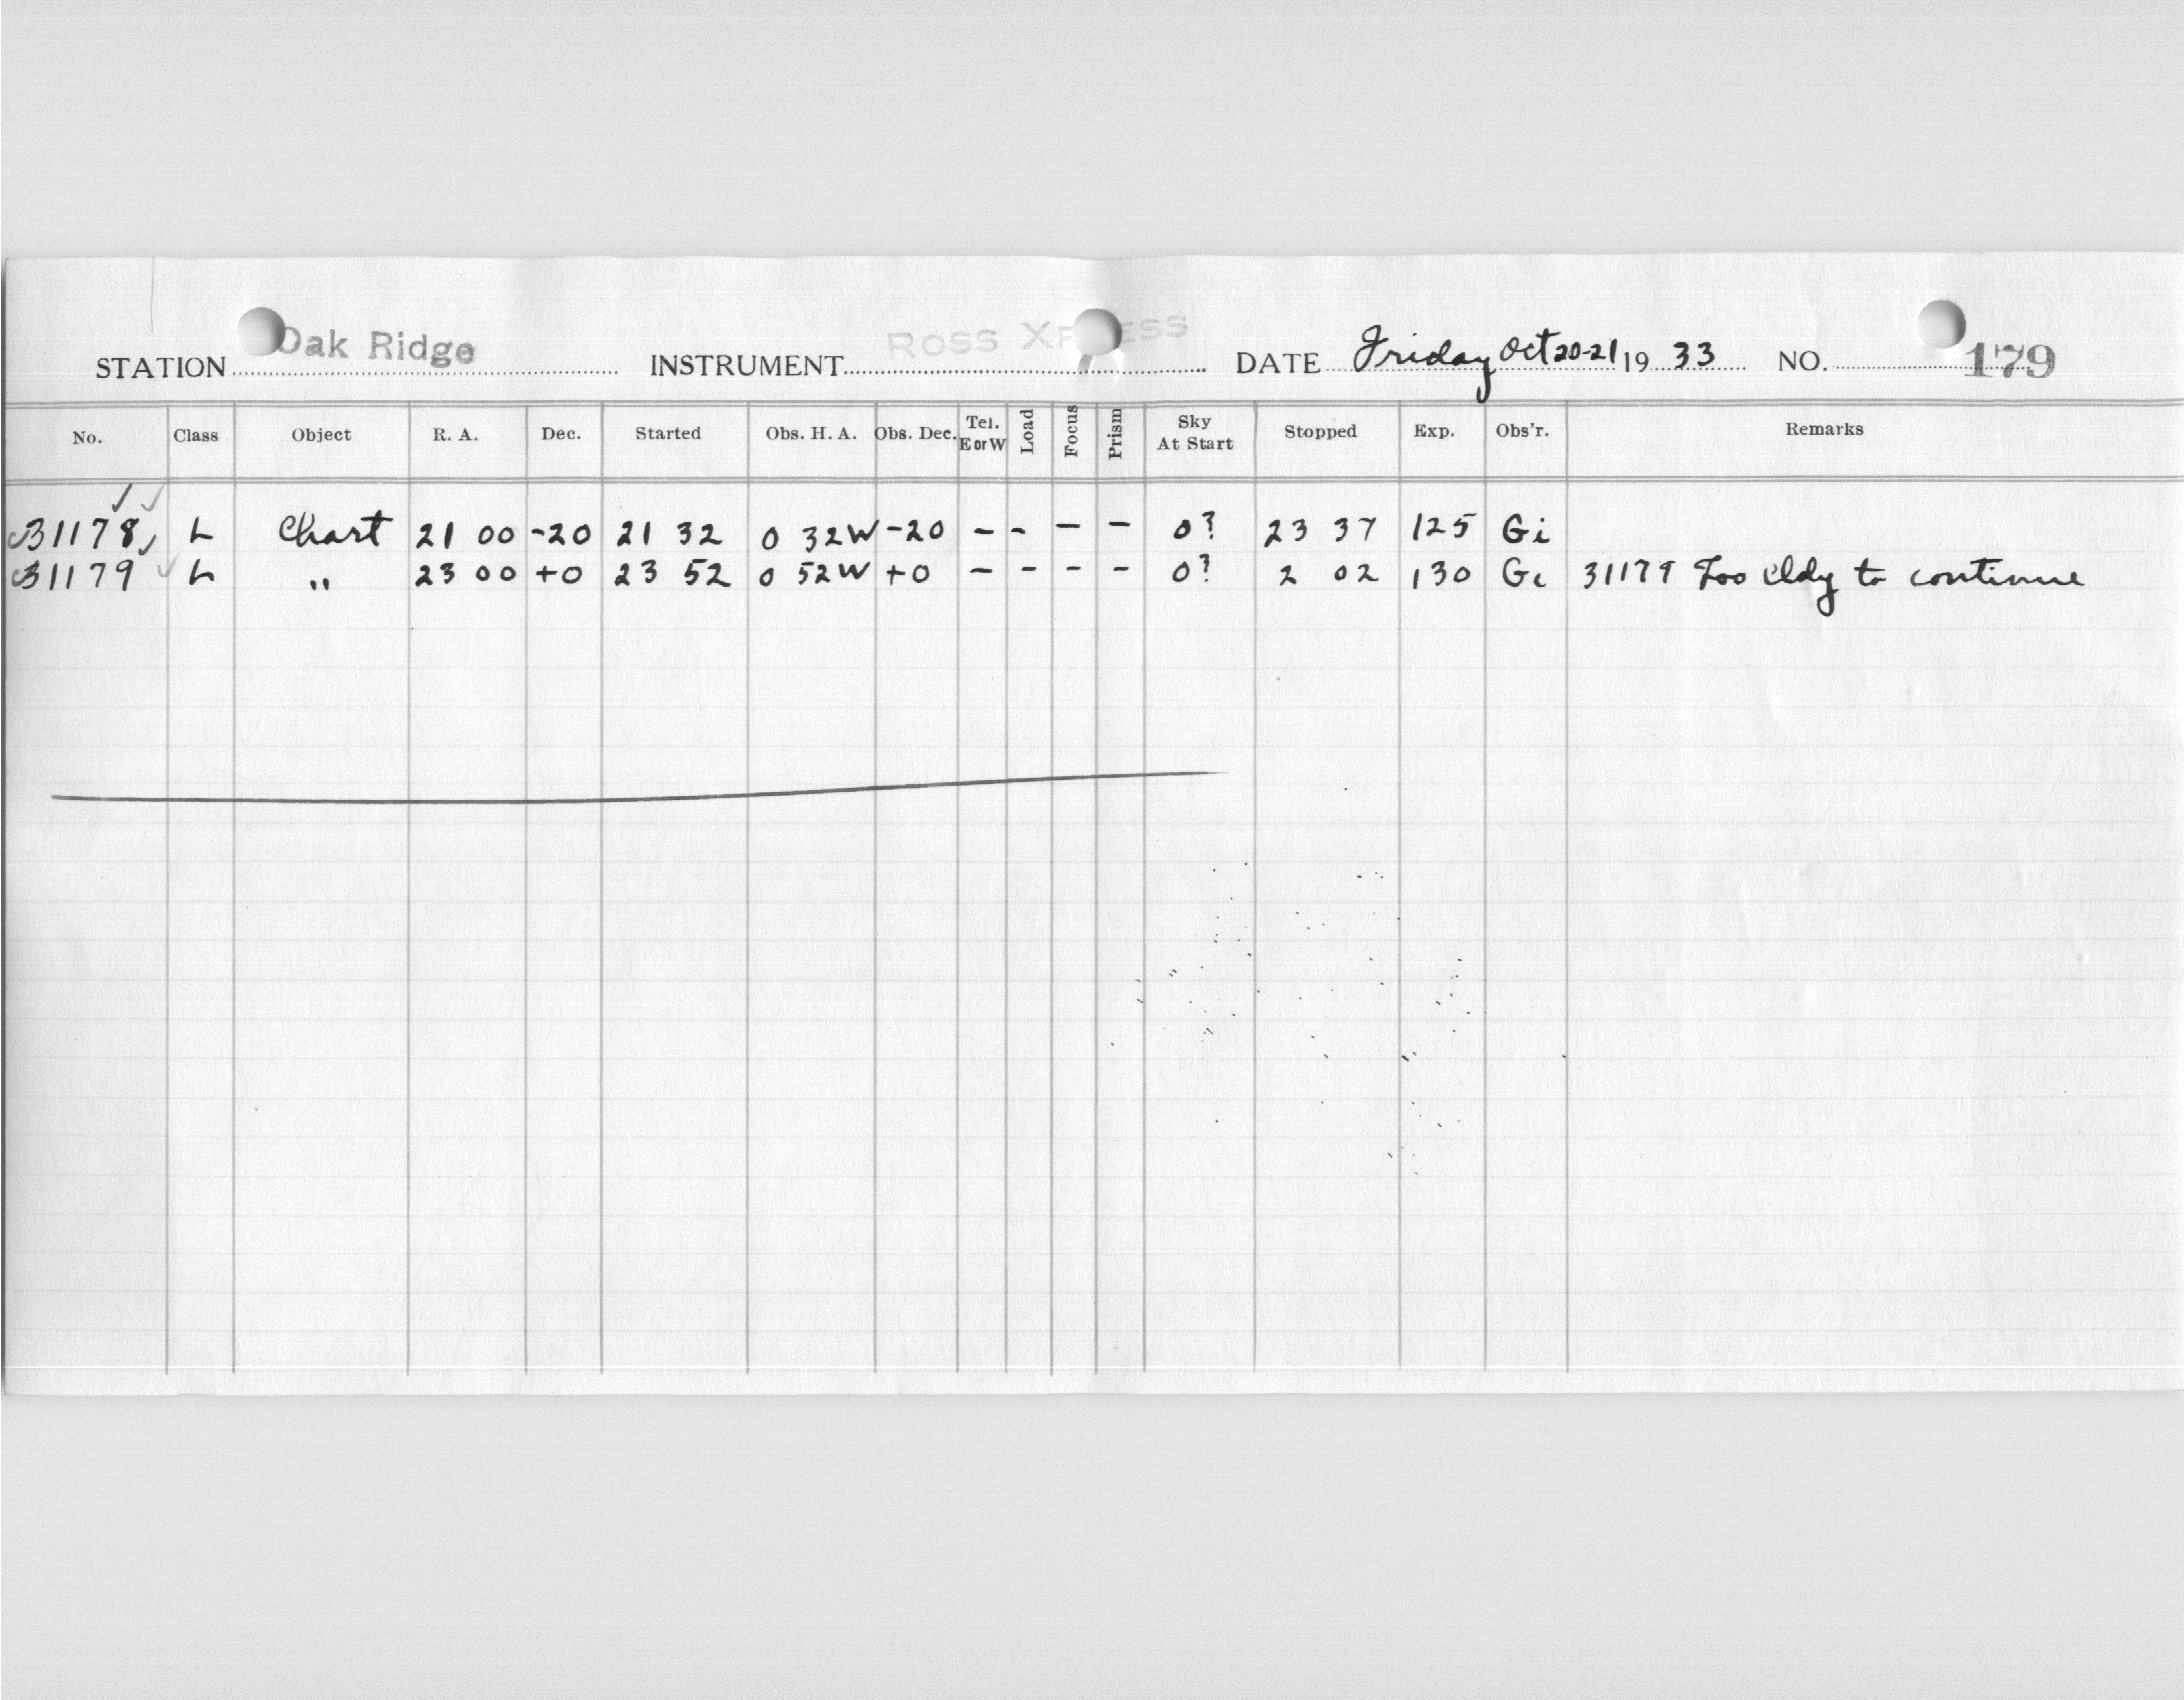 STATION Oak Ridge INSTRUMENT ROSS XPRESS DATE Friday Oct 20-21 19 33 NO. 179
No. Class Object R. A. Dec. Started Obs. H. A. Obs. Dec. Tel. E or W Load Focus Prism Sky At Start Stopped Exp. Obs'r. Remarks
31178 L Chart 21 00 -20 21 32 0 32W -20 - - - - 0? 23 37 125 Gi
31179 L " 23 00 +0 23 52 0 52W +0 - - - - 0? 2 02 130 Gi 31179 Too cldy to continue